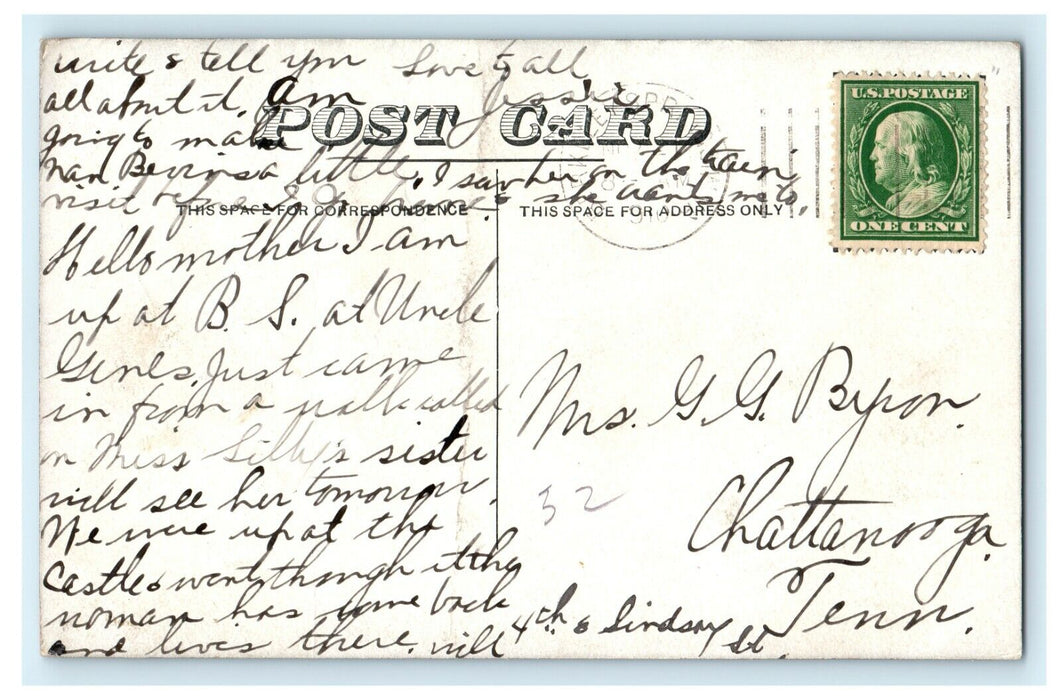 write & tell you Love to all
all about it. Am Jessie
POST CARD
going to make
Nan Bevins a little, I saw her on the train
visit she wants me to,
THIS SPACE FOR CORRESPONDENCE
THIS SPACE FOR ADDRESS ONLY
U.S. POSTAGE
ONE CENT
Hello mother I am
up at B. S. at Uncle
Genes. Just came
in from a walk called
on Miss Lilly's sister
will see her tomorrow.
We were up at the
Castle & went though it the
woman has come back
and lives there. will
Mrs. G. G. Byron.
32
Chattanooga.
Tenn.
4th & Lindsay St.